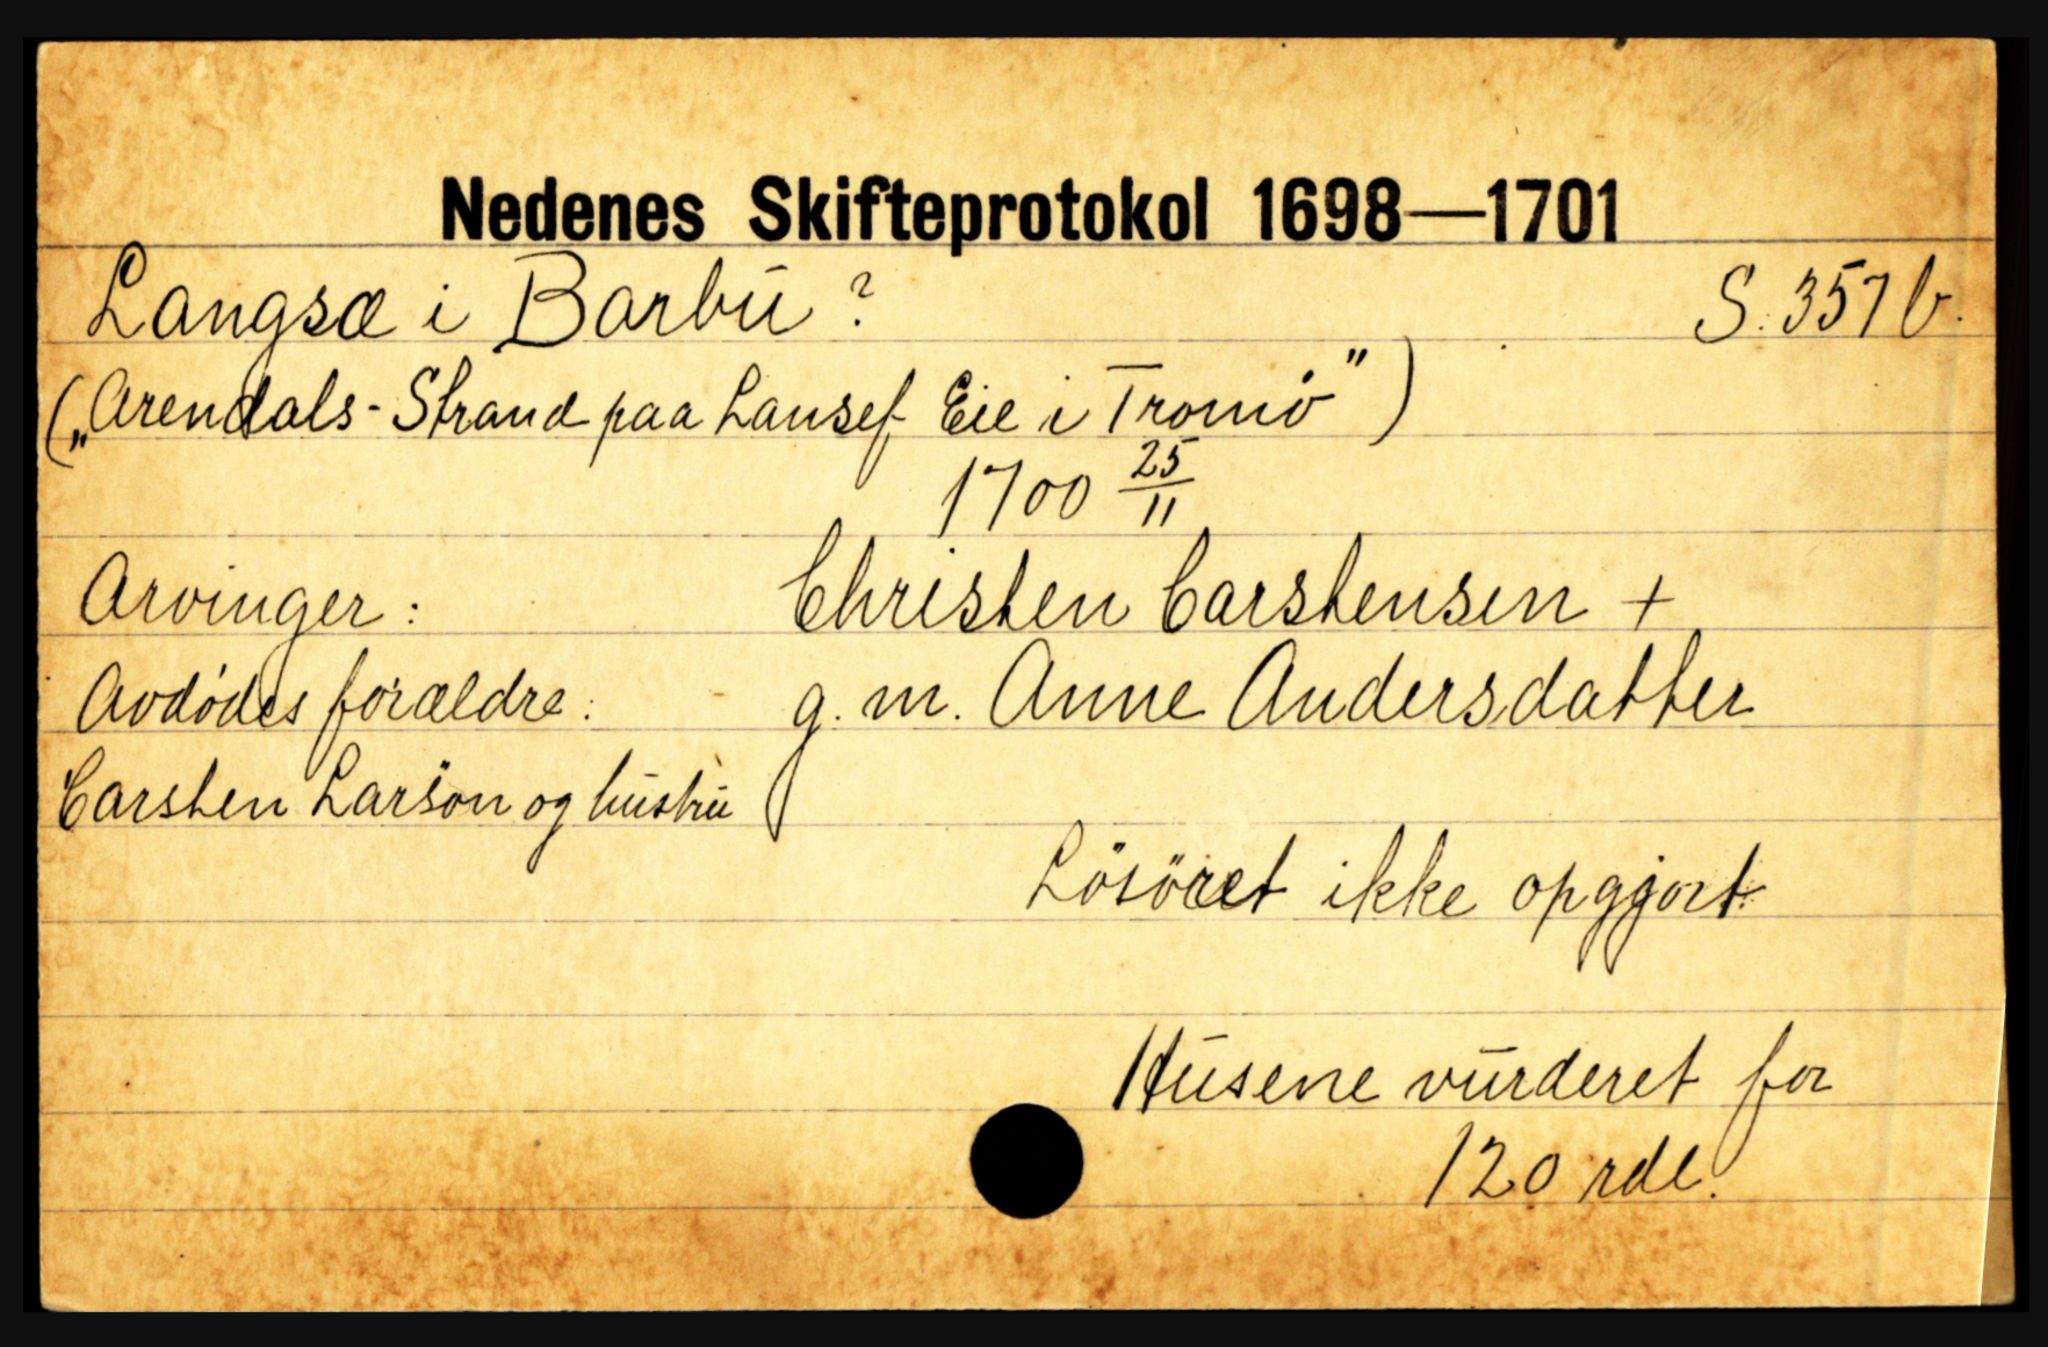 Nedenes Skifteprotokol 1698—1701
Langsæ i Barbu ? S. 357 b.
(„Arendals-Strand paa Lansef Eie i Tromö")
1700 25/11
Arvinger: Christen Carstensen +
Avdödes forældre: g. m. Anne Andersdatter
Carsten Larson og hustru
Lösöret ikke opgjort
Husene vurderet for
120 rdl.